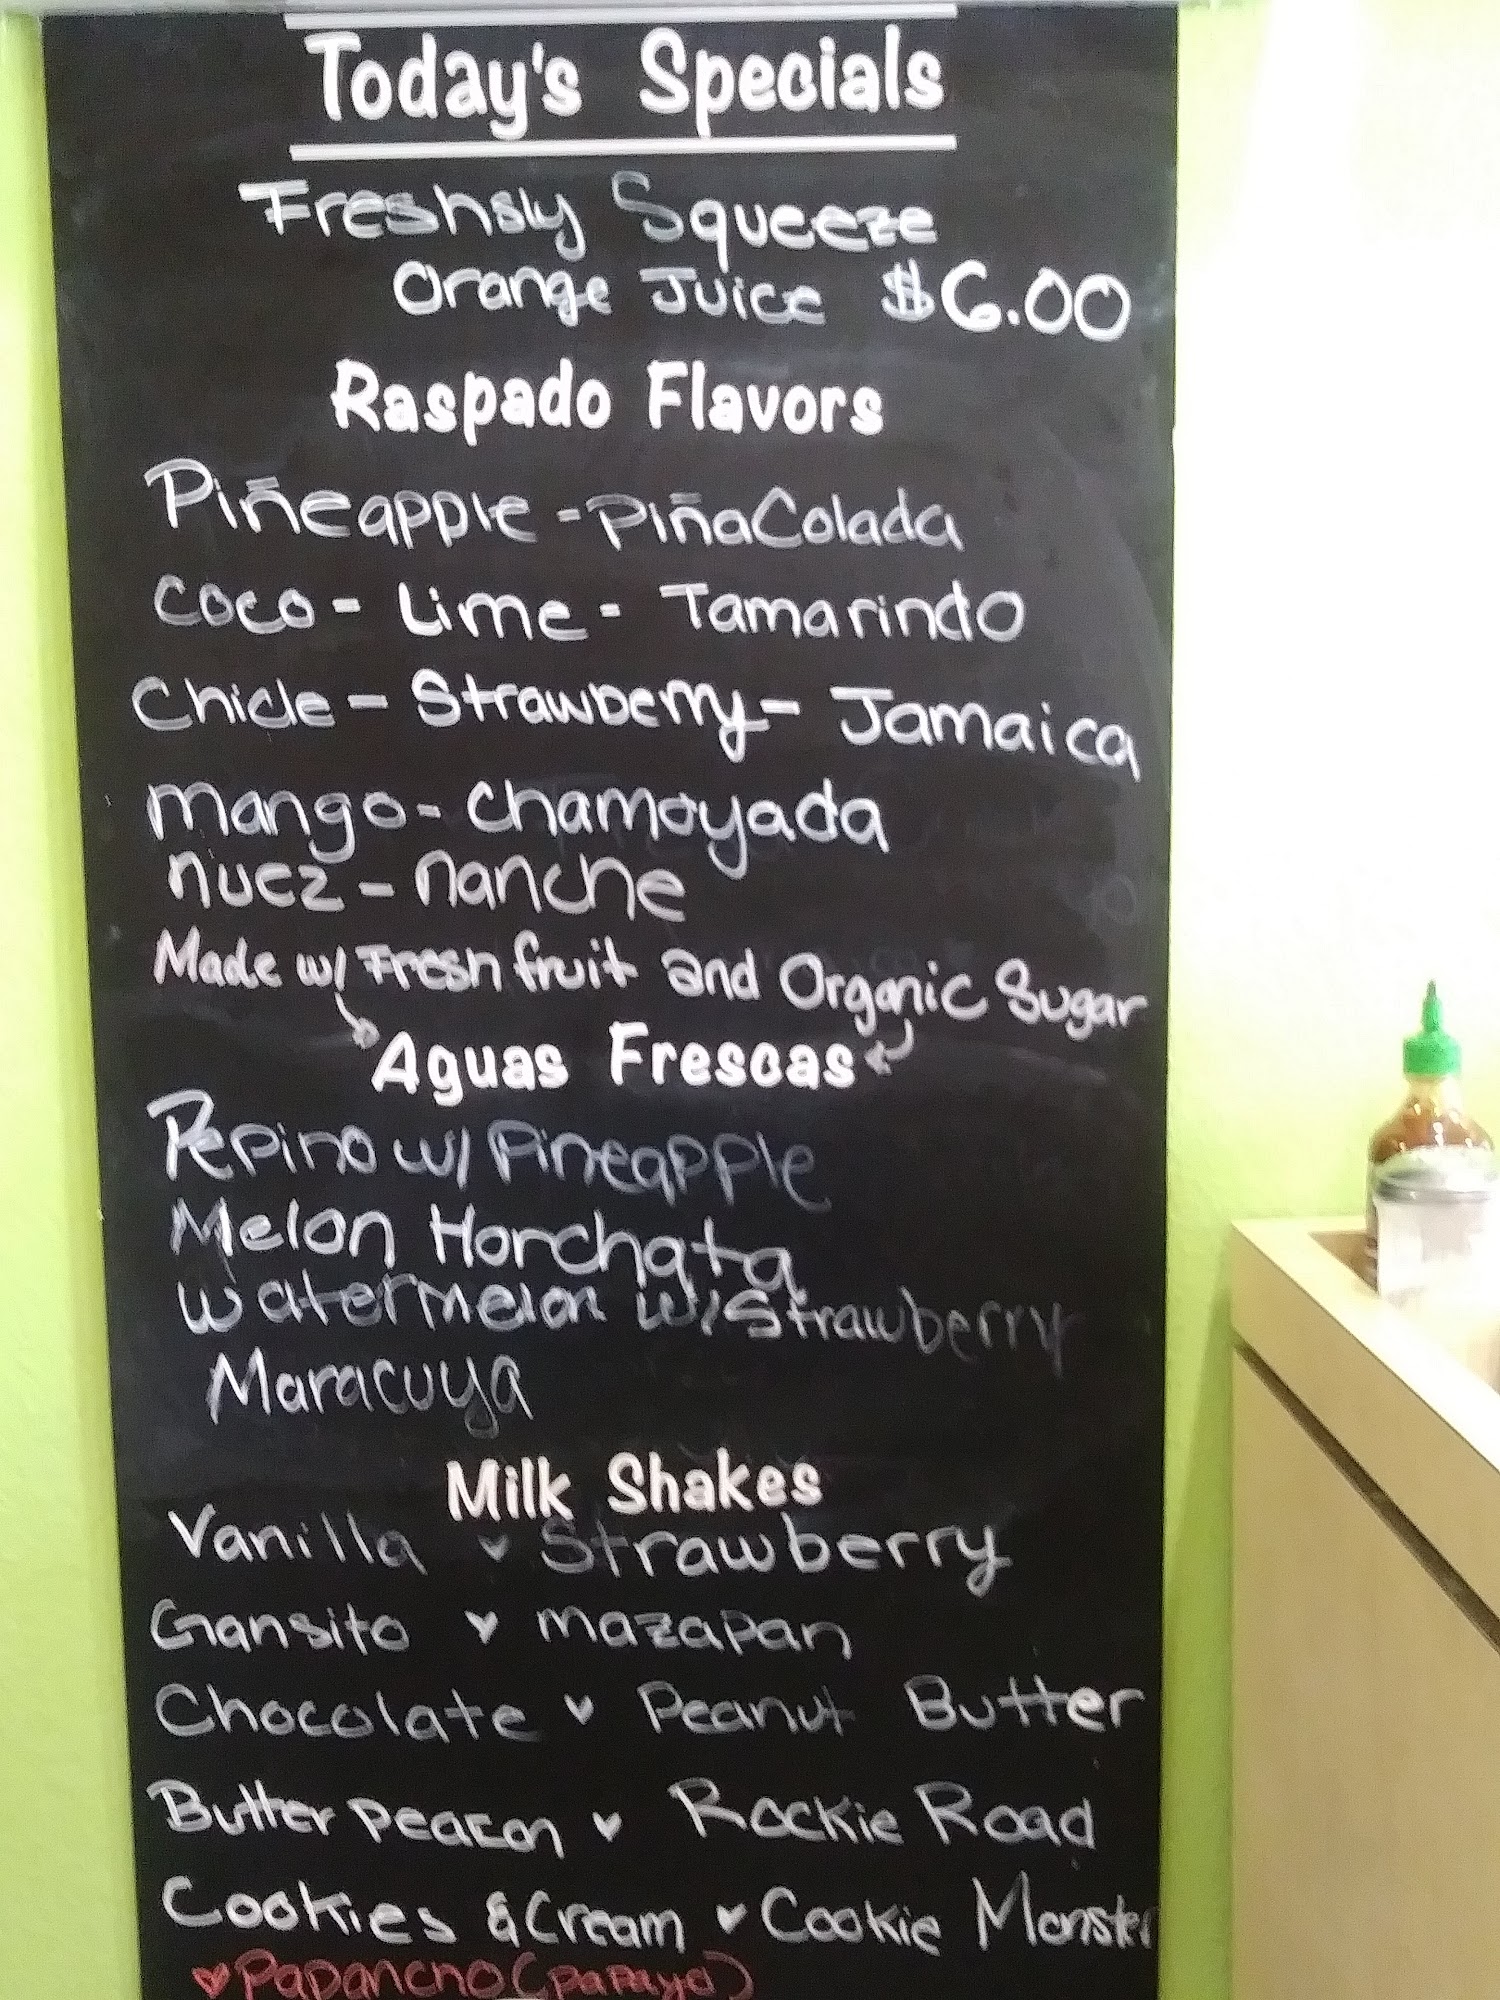 Today's Specials
Freshsly Squeeze
Orange Juice $6.00
Raspado Flavors
Piñeapple - PiñaColada
Coco - Lime - Tamarindo
Chicle - Strawberry - Jamaica
Mango - Chamoyada
nuez - nanche
Made w/ Fresh fruit and Organic Sugar
Aguas Frescas
Pepino w/ Pineapple
Melon Horchata
Watermelon w/ Strawberry
Maracuya
Milk Shakes
Vanilla ♥ Strawberry
Gansito ♥ mazapan
Chocolate ♥ Peanut Butter
Butter peacon ♥ Rockie Road
Cookies & Cream ♥ Cookie Monster
♥ Papancho (papaya)